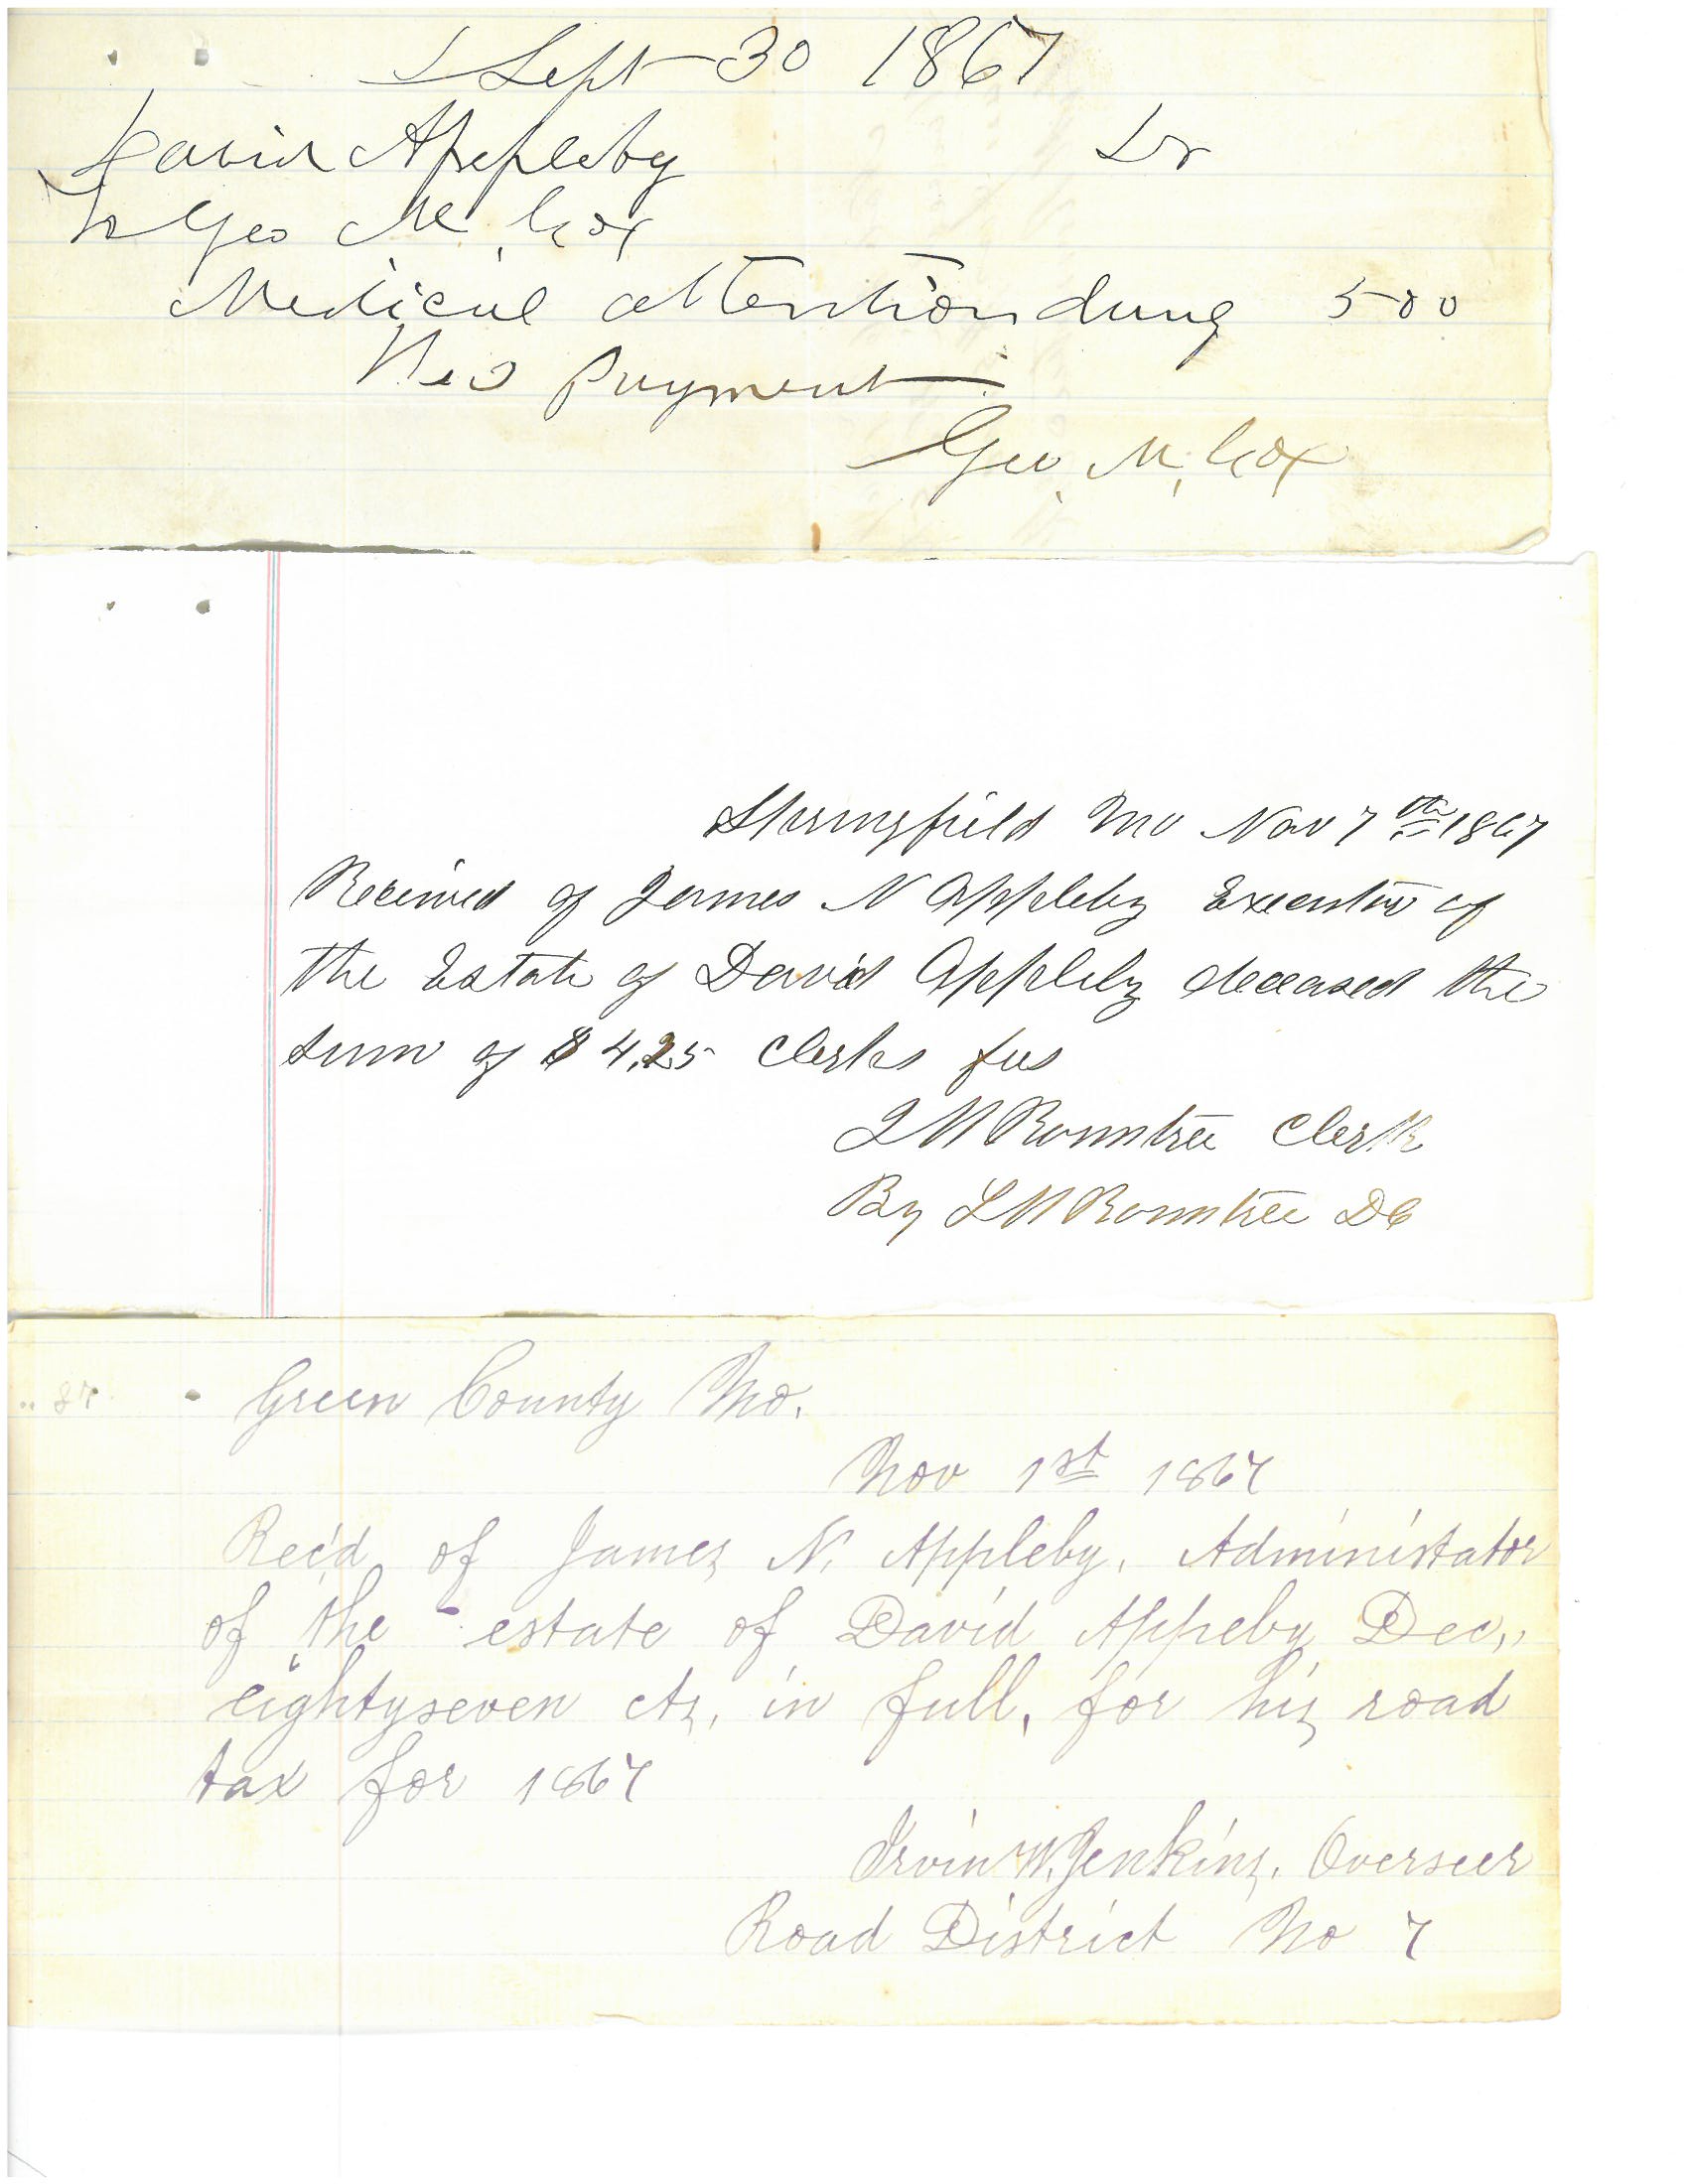 Sept 30 1867
David Appleby Dr
To Geo M. Cox
Medical attention 500
Payment
Geo. M. Cox
Springfield Mo Nov 7th 1867
Received of James N Appleby Executor of
the Estate of David Appleby deceased the
sum of $4.25 Clerks fees
J M Rountree Clerk
By L M Rountree DC
.. 87.
Green County Mo.
Nov 1st 1867
Rec'd, of James N. Appleby, Administator
of the estate of David Appeby Dec,,
eightyseven cts, in full, for his road
tax for 1867
Irvin W. Jenkins, Overseer
Road District No 7